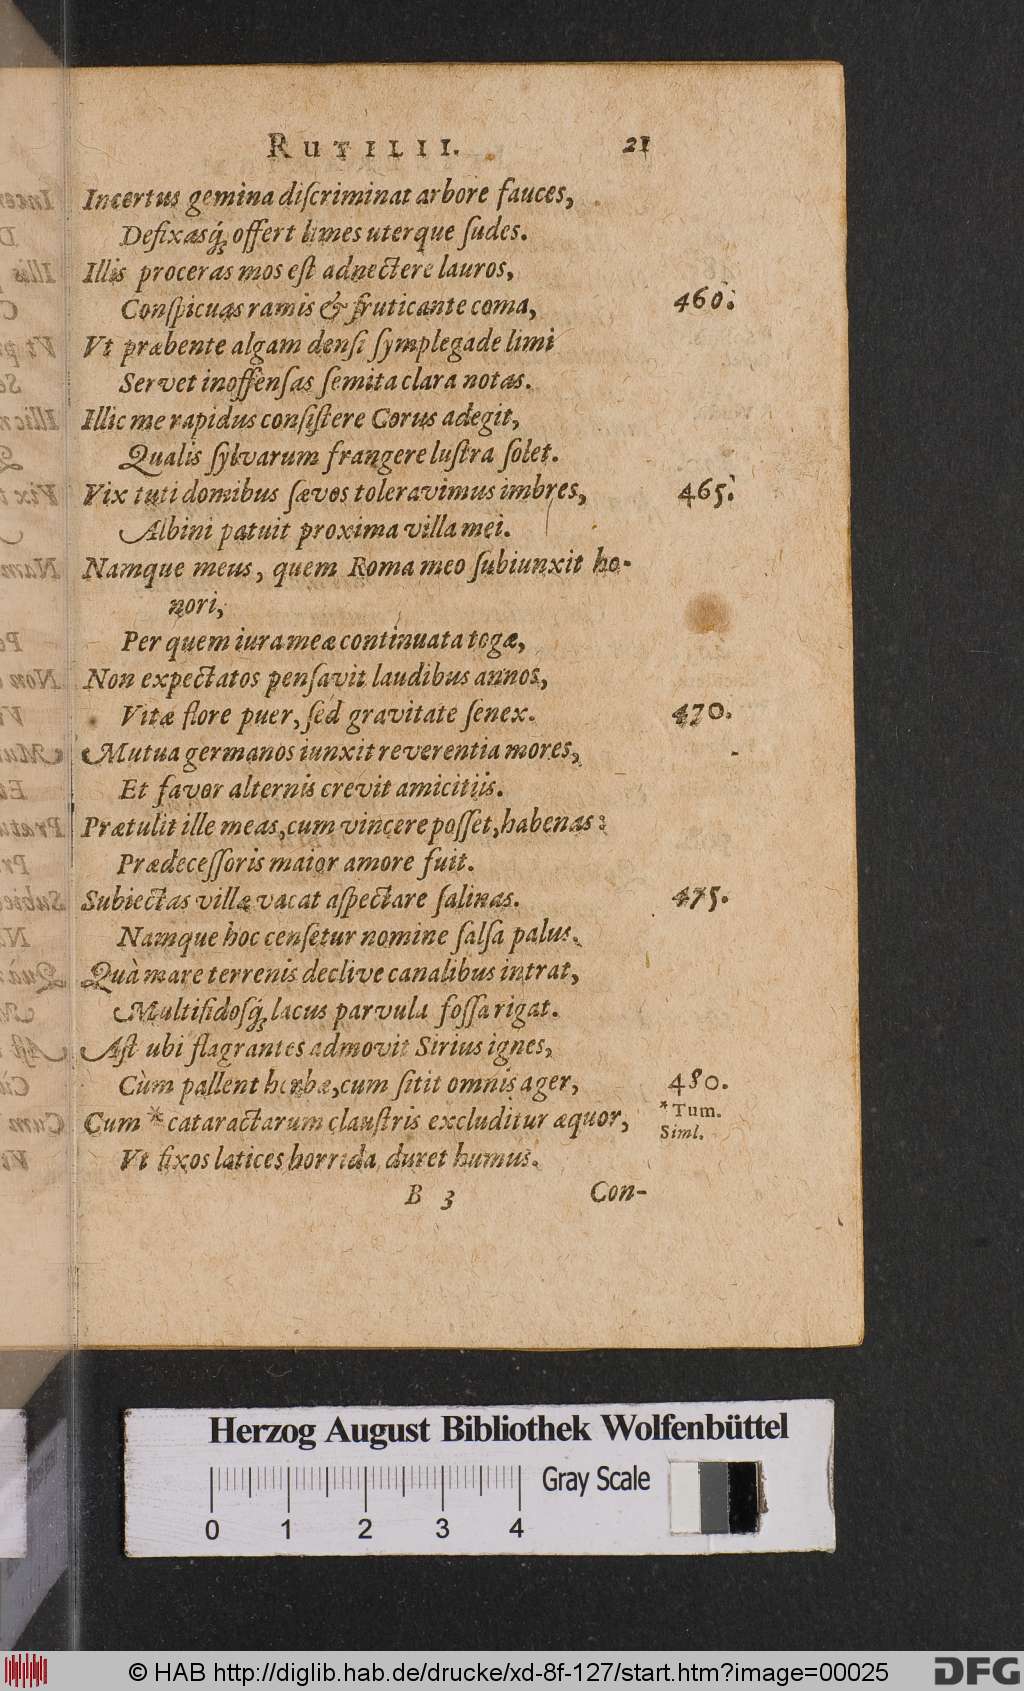 RUTILII. 21
Incertus gemina diſcriminat arbore fauces,
Defixasq́; offert limes uterque ſudes.
Illis proceras mos eſt adnectere lauros,
Conſpicuas ramis & fruticante coma, 460.
Vt præbente algam denſi ſymplegade limi
Servet inoffenſas ſemita clara notas.
Illic me rapidus conſiſtere Corus adegit,
Qualis ſylvarum frangere luſtra ſolet.
Vix tuti domibus ſævos toleravimus imbres, 465.
Albini patuit proxima villa mei.
Namque meus, quem Roma meo ſubiunxit ho-
nori,
Per quem iura meæ continuata togæ,
Non expectatos penſavit laudibus annos,
Vitæ flore puer, ſed gravitate ſenex. 470.
Mutua germanos iunxit reverentia mores,
Et favor alternis crevit amicitiis.
Prætulit ille meas, cum vincere poſſet, habenas:
Prædeceſſoris maior amore fuit.
Subiectas villæ vacat aſpectare ſalinas. 475.
Namque hoc cenſetur nomine ſalſa palus.
Quà mare terrenis declive canalibus intrat,
Multifidoſq́; lacus parvula foſſa rigat.
Aſt ubi flagrantes admovit Sirius ignes,
Cùm pallent herbæ, cum ſitit omnis ager, 480.
Cum * cataractarum clauſtris excluditur æquor, *Tum.
Siml.
Vt fixos latices horrida duret humus.
B 3 Con-
Herzog August Bibliothek Wolfenbüttel
Gray Scale
0 1 2 3 4
© HAB http://diglib.hab.de/drucke/xd-8f-127/start.htm?image=00025
DFG